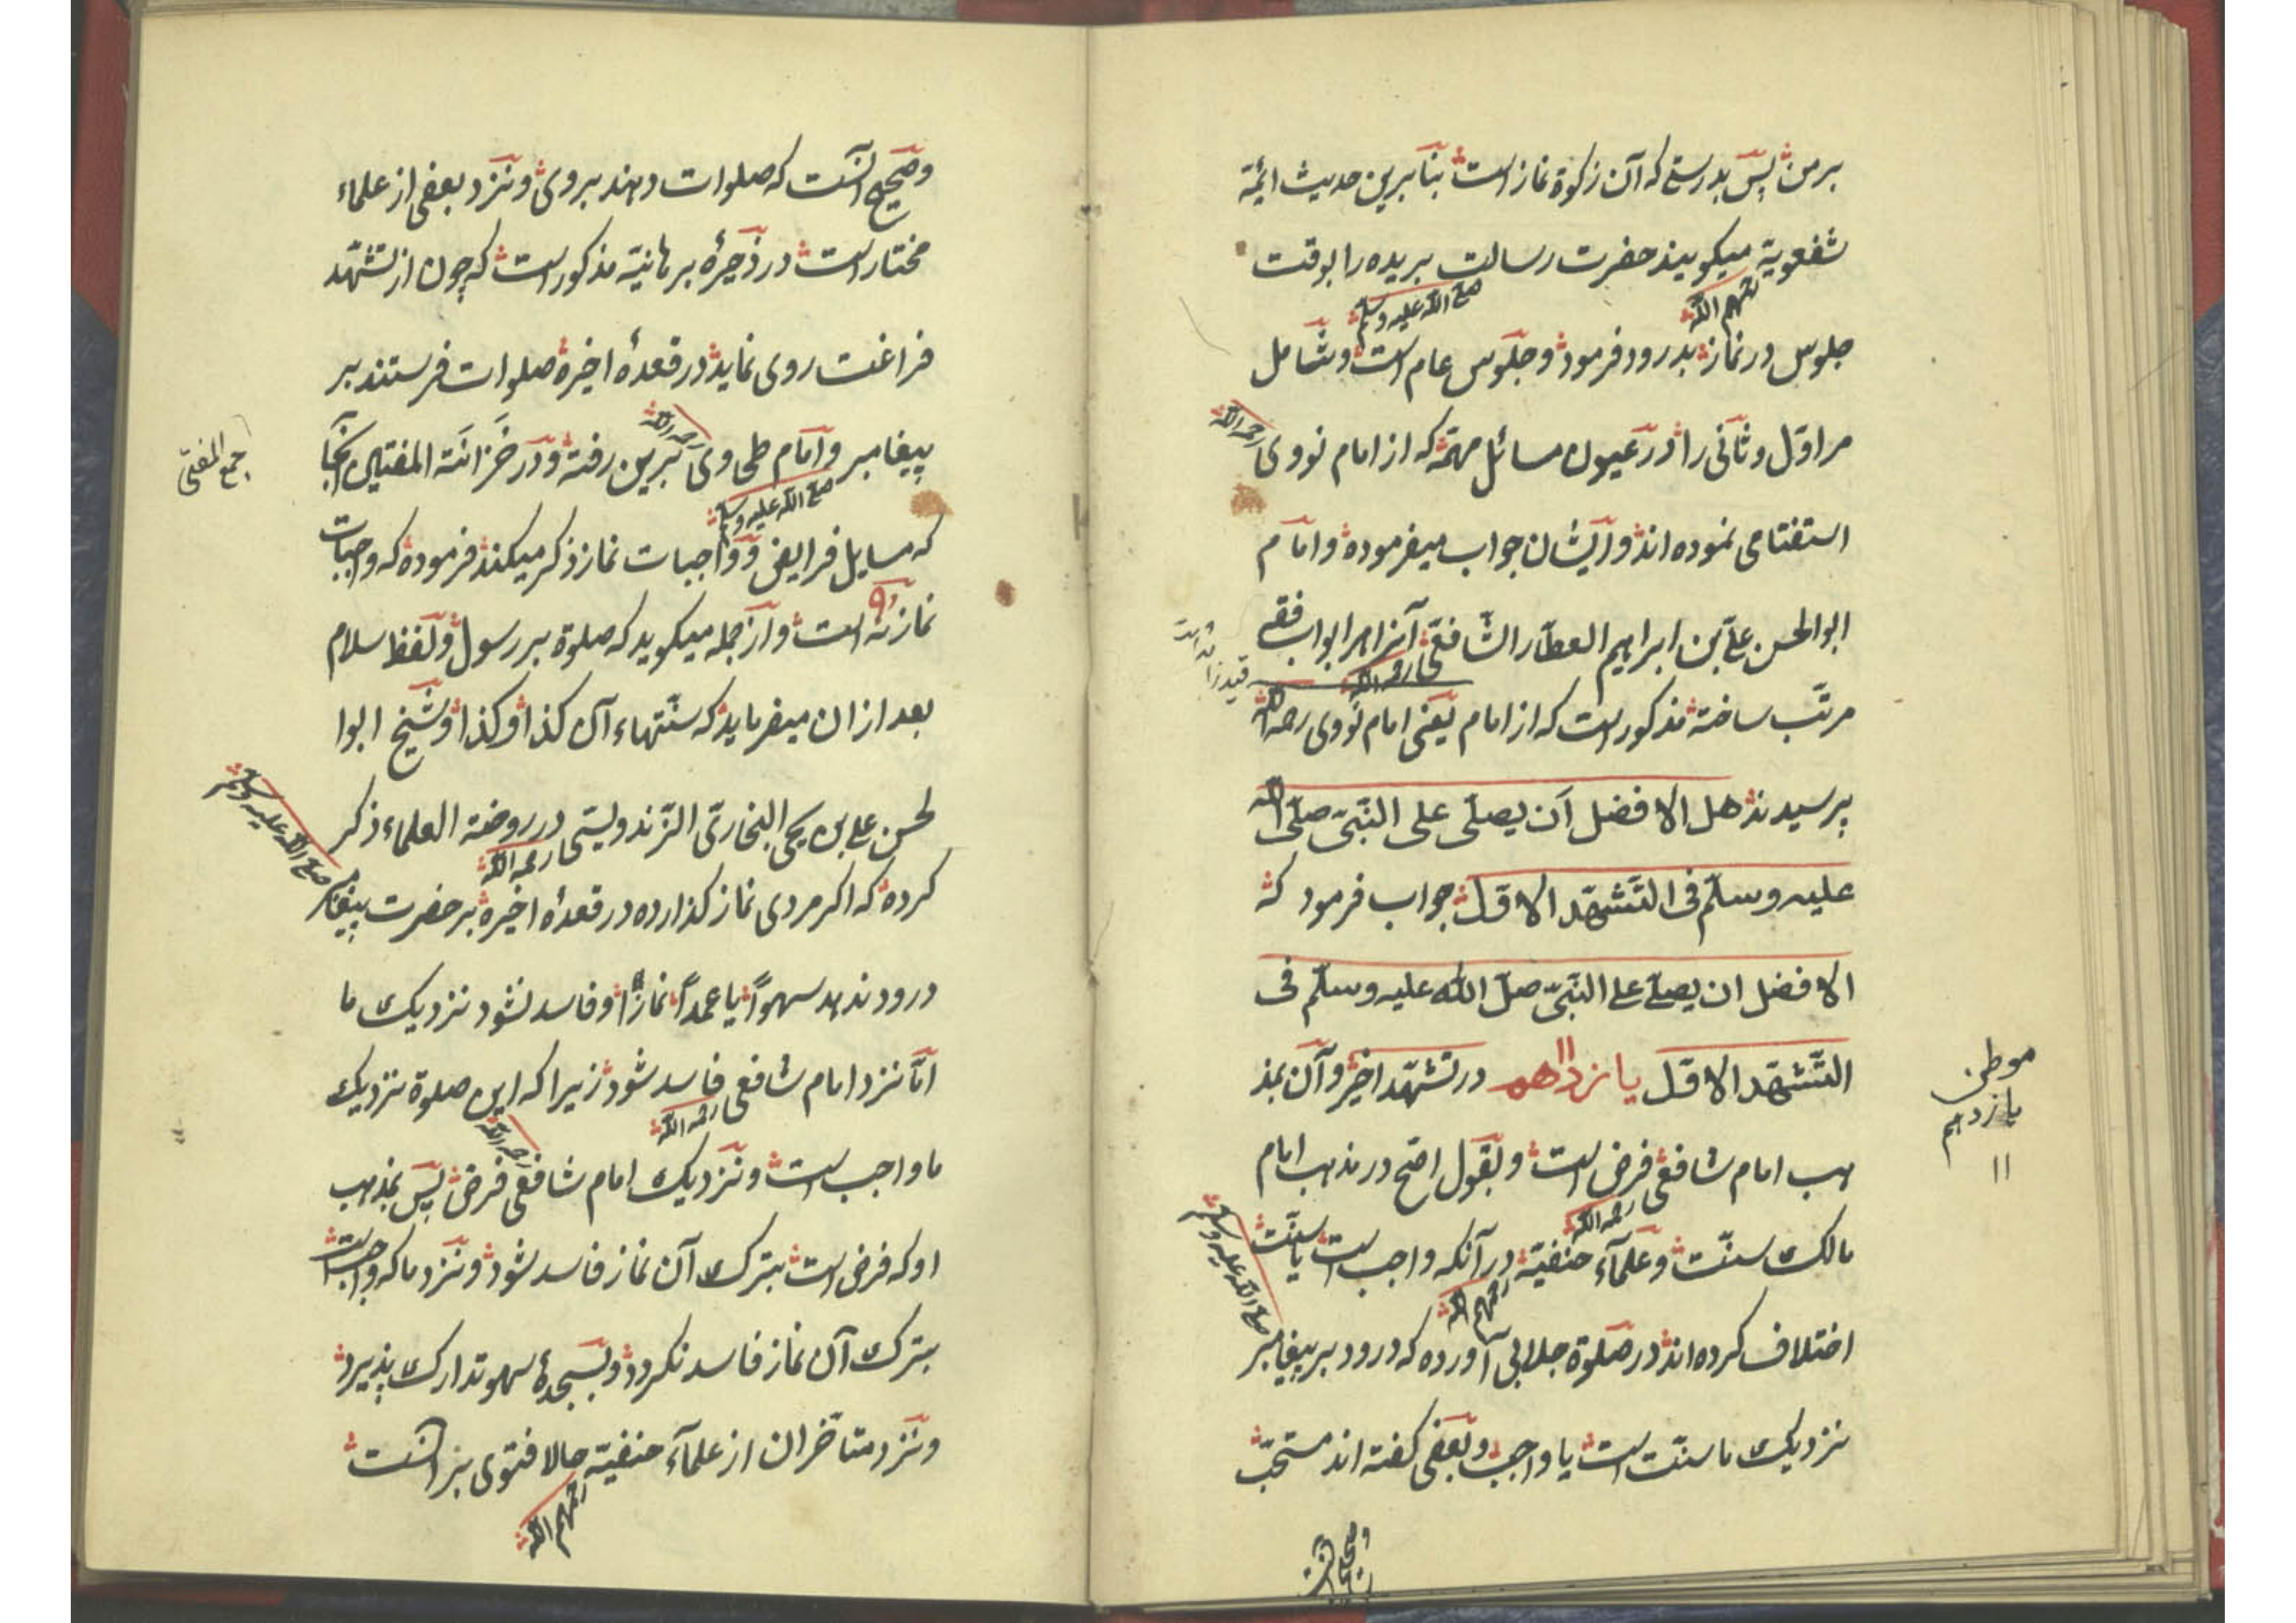 بر من پس بدرستے که آن زکوة نماز است بنابرین حدیث ائمّة
شفعویة رحمهم الله میکویند حضرت رسالت صلی الله علیه وسلم بریده را بوقت
جلوس در نماز بدرود فرمود و جلوس عام است و شامل
مر اوّل و ثانی را در عیون مسائل مهمّة که از امام نووی رحمه الله
استفتامی نموده اند و ایشان جواب میفرموده و امام
ابو الحسن علی بن ابراهیم العطار الشافعی رحمه الله آنرا بر ابواب فقه
مرتّب ساخته مذکور است که از امام یعنی امام نووی رحمه الله
پرسیدند هل الافضل اَن یصلّی علی النّبیّ صلّی الله
علیه وسلّم فی التّشهّد الاوّل جواب فرمود که
الافضل ان یصلّے علے النّبیّ صلّی الله علیه وسلّم فی
التّشهّد الاوّل یازدهم ۱۱ در تشهّد اخیر و آن بمذ
هب امام شافعی رحمه الله فرض است و بقول اصّح در مذهب امام
مالک سنّت و علمآء حنفیّة رحمهم الله در آنکه واجب است یا سنّت
اختلاف کرده اند در صلوة جلابی آورده که درود بر پیغامبر صلی الله علیه وسلم
نزدیک ما سنّت است یا واجب و بعضی کفته اند مستحبّ
موطن
یازدهم
۱۱
وصحیح آنست که صلوات دهند بروی و نزد بعضی از علماء
مختار است در ذخیرهٔ برهانیّه مذکور است که چون از تشهّد
فراغت روی نماید در قعدهٔ اخیرة صلوات فرستند بر
پیغامبر صلی الله علیه وسلم و امام طحاوی رحمه الله برین رفته و در خزانَة المفتیین آنجا
که مسایل فرایض و واجبات نماز ذکر میکند فرموده که واجبات
نماز نُه ۹ است و از جمله میکوید که صلوة بر رسول و لفظ سلام
بعد از ان میفرماید که سنّتهاء آن کذا و کذا و شیخ ابوا
لحسن علی بن یحیی البخاریّ الزّندویستی رحمه الله در روضة العلماء ذکر
کرده که اکر مردی نماز کذارده در قعدهٔ اخیرة بر حضرت پیغامبر صلی الله علیه وسلم
درود ندهد سهواً یا عمداً نماز او فاسد نشود نزدیک ما
امّا نزد امام شافعی رحمه الله فاسد شود زیرا که این صلوة نزدیک
ما واجب است و نزدیک امام شافعی رحمه الله فرض پس بمذهب
او که فرض است بترک آن نماز فاسد شود و نزد ما که واجب است
بترک آن نماز فاسد نکردد و بسجدهٔ سهو تدارک پذیرد
و نزد متاخّران از علمآء حنفیّه رحمهم الله حالا فتوی بر آنست
جمع المفتیّ